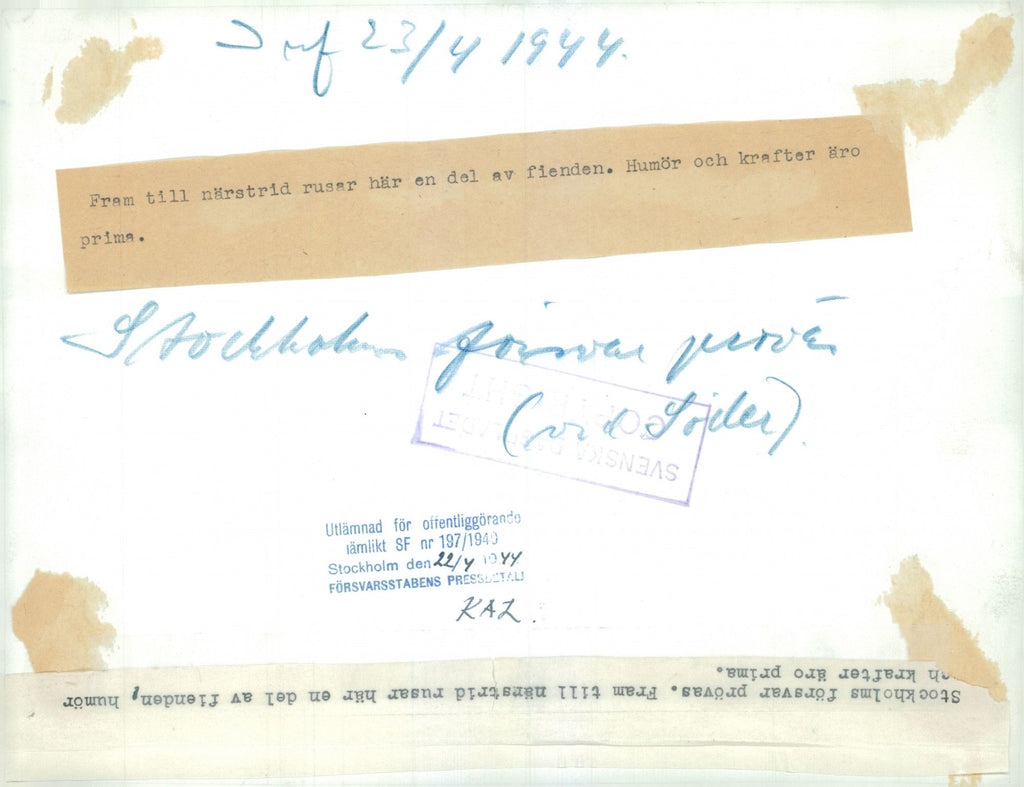 23/4 1944.
Fram till närstrid rusar här en del av fienden. Humör och krafter äro
prima.
Stockholms försvar prövas
(vid Söder).
SVENSKA DAGBLADET
COPYRIGHT
Utlämnad för offentliggörande
jämlikt SF nr 197/1940
Stockholm den 22/4 1944
FÖRSVARSSTABENS PRESSDETALJ
KAL.
Stockholms försvar prövas. Fram till närstrid rusar här en del av fienden, humör
och krafter äro prima.